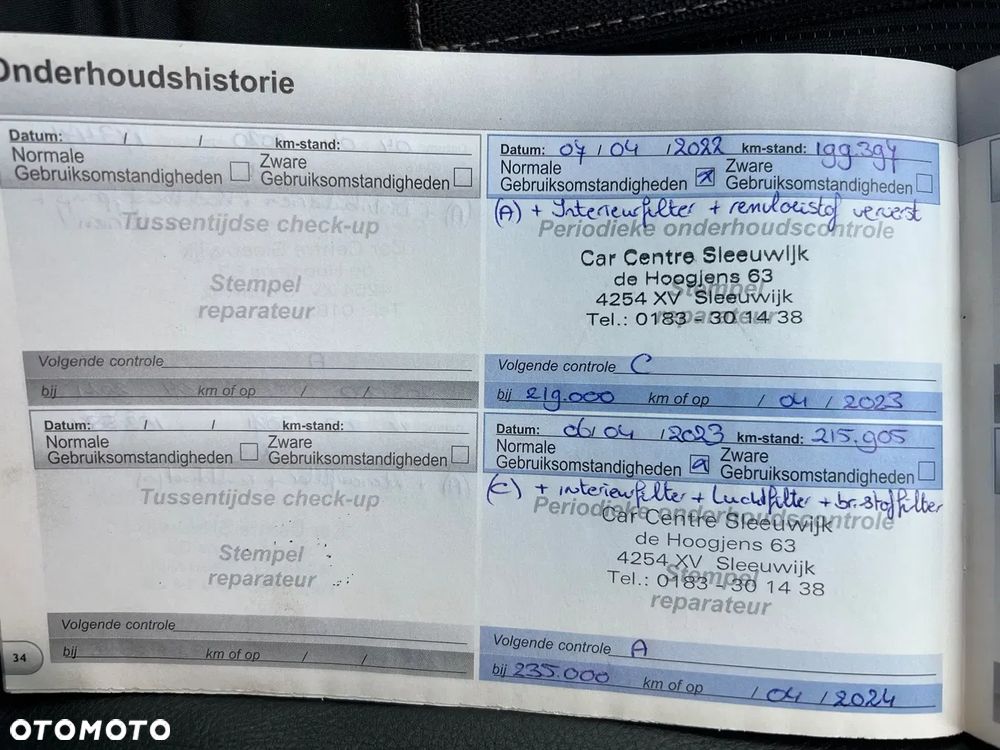 Onderhoudshistorie
Datum: / / km-stand:
Normale Gebruiksomstandigheden
Zware Gebruiksomstandigheden
Tussentijdse check-up
Stempel
reparateur
Volgende controle
bij km of op / /
Datum: 07 / 04 / 2022 km-stand: 199.397
Normale Gebruiksomstandigheden
Zware Gebruiksomstandigheden
(A) + Interieurfilter + remvloeistof ververst
Periodieke onderhoudscontrole
Car Centre Sleeuwijk
de Hoogjens 63
Stempel
4254 XV Sleeuwijk
reparateur
Tel.: 0183 - 30 14 38
Volgende controle C
bij 219.000 km of op / 04 / 2023
Datum: / / km-stand:
Normale Gebruiksomstandigheden
Zware Gebruiksomstandigheden
Tussentijdse check-up
Stempel
reparateur
Volgende controle
bij km of op / /
Datum: 06/04 /2023 km-stand: 215.905
Normale Gebruiksomstandigheden
Zware Gebruiksomstandigheden
(C) + interieurfilter + Luchtfilter + br.stoffilter
Periodieke onderhoudscontrole
Car Centre Sleeuwijk
de Hoogjens 63
4254 XV Sleeuwijk
Stempel
Tel.: 0183 - 30 14 38
reparateur
Volgende controle A
bij 235.000 km of op / 04 / 2024
34
OTOMOTO